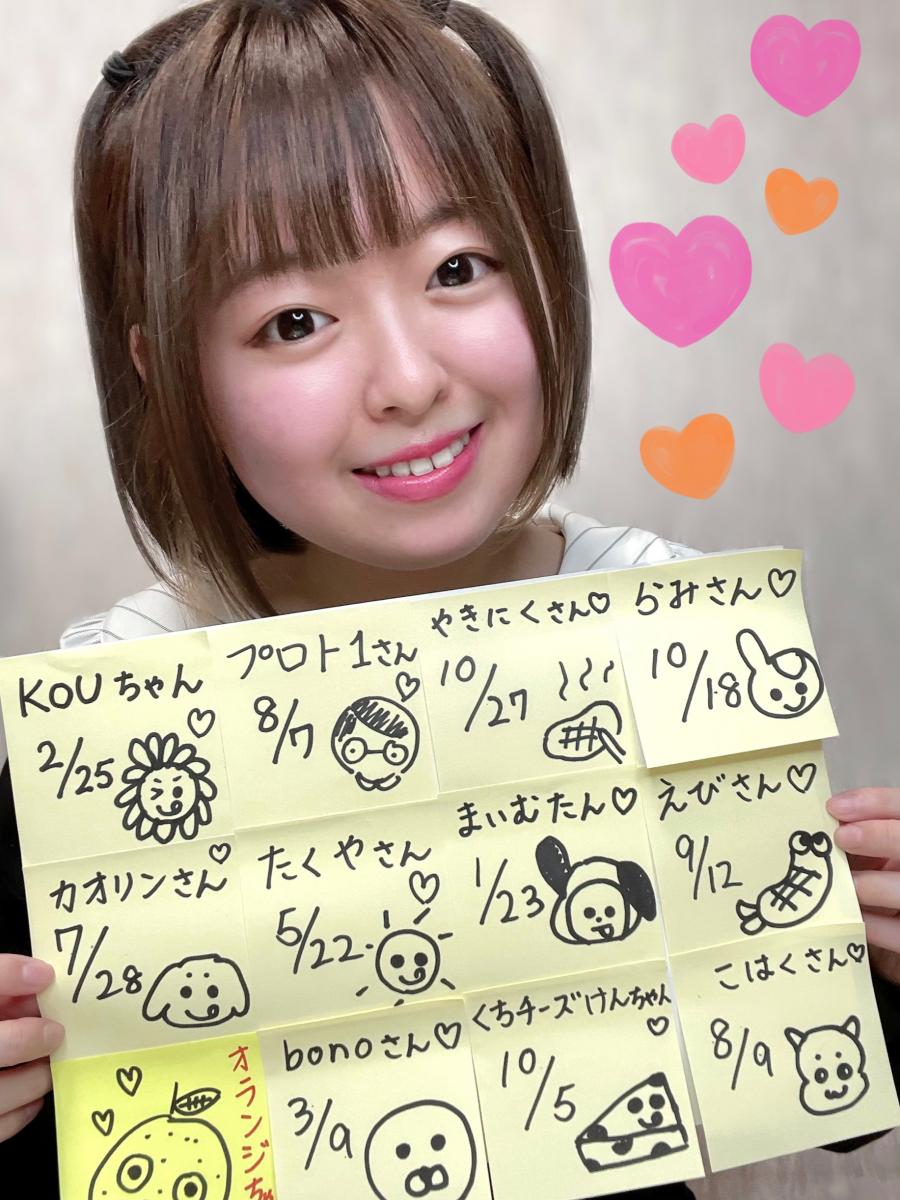 KOUちゃん♡
2/25
プロト1さん♡
8/7
やきにくさん♡
10/27
らみさん♡
10/18
カオリンさん♡
7/28
たくやさん♡
5/22
まいむたん♡
1/23
えびさん♡
9/12
オランジちゃ
bonoさん♡
3/9
くちチーズけんちゃん♡
10/5
こはくさん♡
8/9